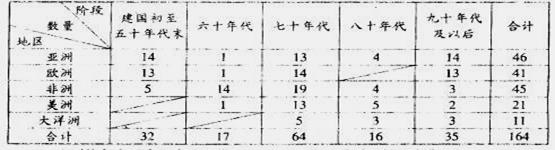 阶段 数量 地区 建国初至五十年代末 六十年代 七十年代 八十年代 九十年代及以后 合计
亚洲 14 1 13 4 14 46
欧洲 13 1 14 13 41
非洲 5 14 19 4 3 45
美洲 1 13 5 2 21
大洋洲 5 3 3 11
合计 32 17 64 16 35 164